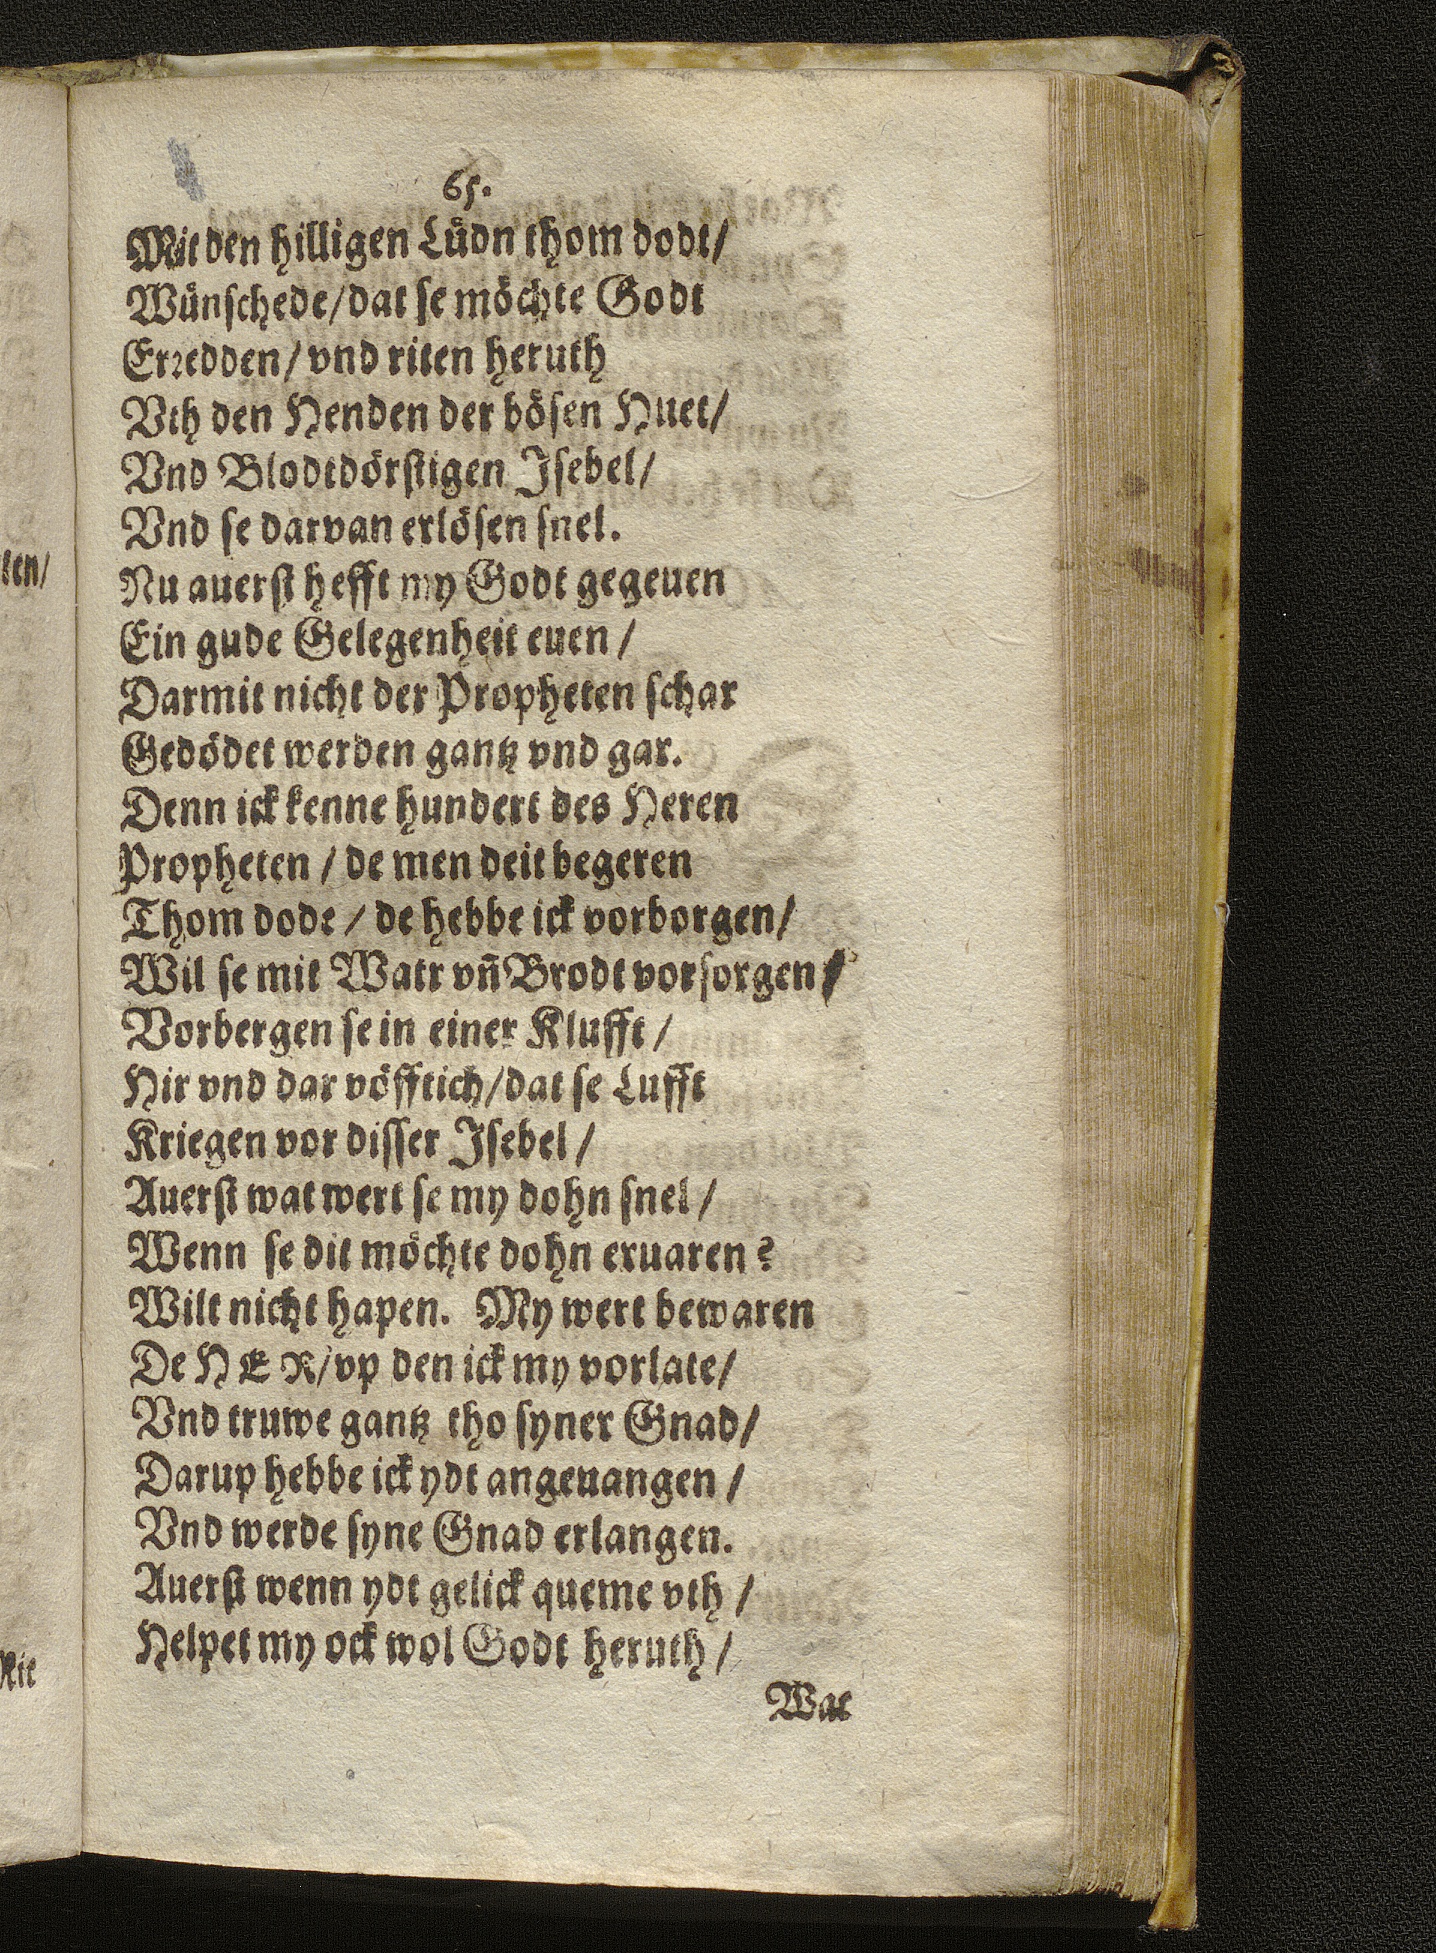 65.
Mit den hilligen Lüdn thom dodt/
Wünschede/dat se möchte Godt
Erredden/ vnd riten heruth
Vth den Henden der bösen Huet/
Vnd Blodtdörstigen Jsebel/
Vnd se darvan erlösen snel.
ten/
Nu auerst hefft my Godt gegeuen
Ein gude Gelegenheit euen /
Darmit nicht der Propheten schar
Gedödet werden gantz vnd gar.
Denn ick kenne hundert des Heren
Propheten / de men deit begeren
Thom dode / de hebbe ick vorborgen/
Wil se mit Watr vn̄ Brodt vorsorgen/
Vorbergen se in einer Klufft /
Hir vnd dar vöfftich/dat se Lufft
Kriegen vor disser Jsebel /
Auerst wat wert se my dohn snel /
Wenn se dit möchte dohn eruaren?
Wilt nicht hapen. My wert bewaren
De HER/vp den ick my vorlate/
Vnd truwe gantz tho syner Gnad/
Darup hebbe ick ydt angeuangen /
Vnd werde syne Gnad erlangen.
Auerst wenn ydt gelick queme vth /
Helpet my ock wol Godt heruth /
Wat